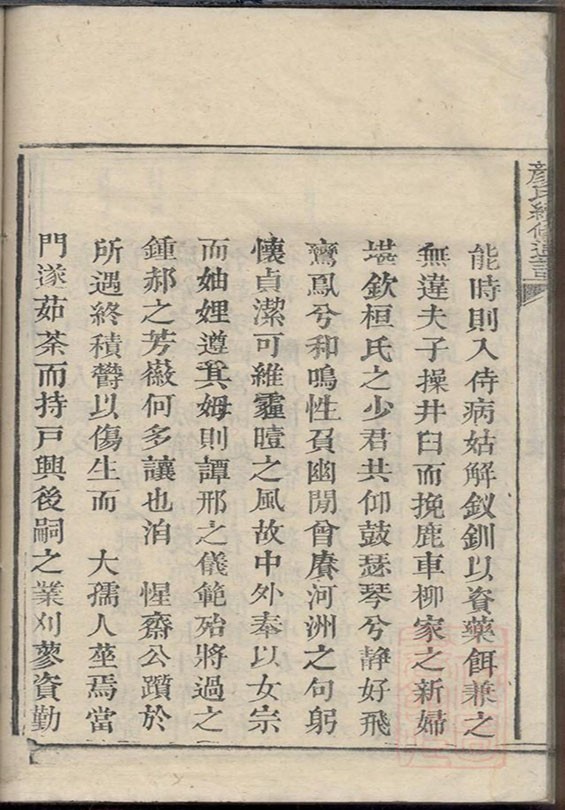 顏氏續修通譜
能時則入侍病姑解釵釧以資藥餌兼之
無違夫子操井臼而挽鹿車柳家之新婦
堪欽桓氏之少君共仰鼓瑟琴兮靜好飛
鸞鳳兮和鳴性貟幽閒曾賡河洲之句躬
懷貞潔可維霾曀之風故中外奉以女宗
而妯娌遵其姆則譚邢之儀範殆將過之
鍾郝之芳徽何多讓也洎 惺齋公躓於
所遇終積欝以傷生而 大孺人煢焉當
門遂茹荼而持戸興後嗣之業刈蓼資勤